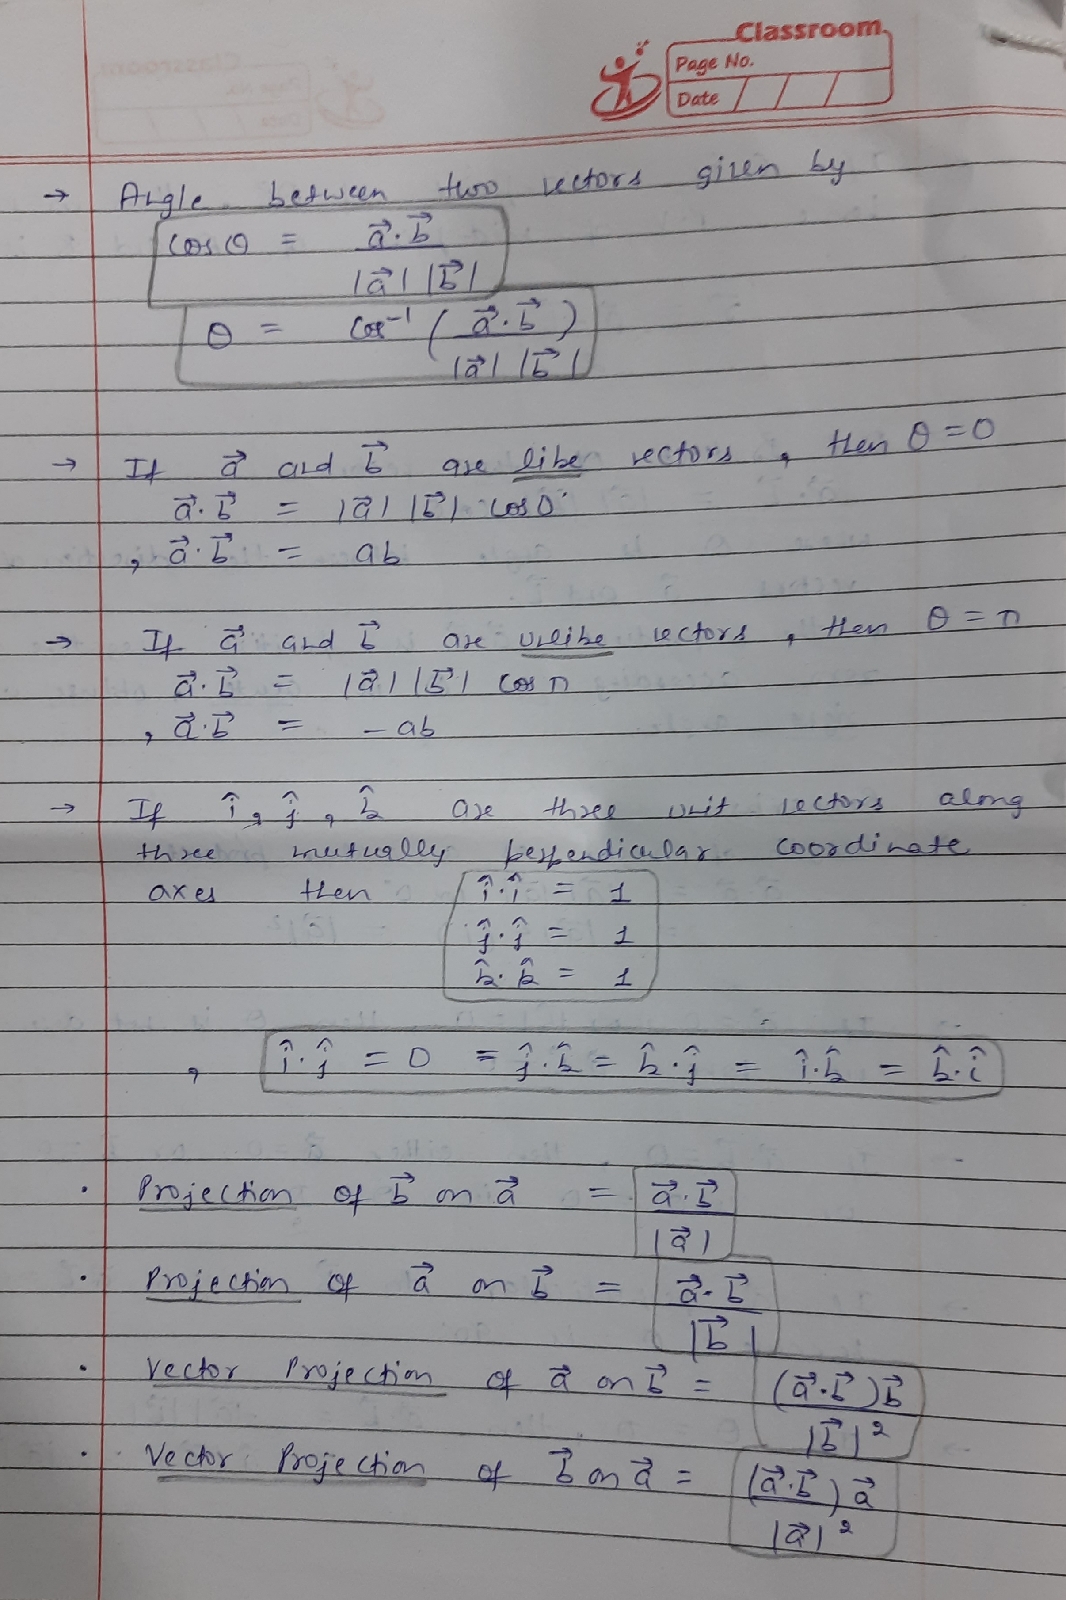 Classroom
Page No.
Date
→ Angle between two vectors given by
cos θ = a⃗·b⃗ / |a⃗| |b⃗|
θ = cos⁻¹ ( a⃗·b⃗ / |a⃗| |b⃗| )
→ If a⃗ and b⃗ are like vectors, then θ = 0
a⃗·b⃗ = |a⃗| |b⃗| cos 0°
, a⃗·b⃗ = ab
→ If a⃗ and b⃗ are unlike vectors, then θ = π
a⃗·b⃗ = |a⃗| |b⃗| cos π
, a⃗·b⃗ = -ab
→ If î, ĵ, k̂ are three unit vectors along
three mutually perpendicular coordinate
axes then î·î = 1
ĵ·ĵ = 1
k̂·k̂ = 1
, î·ĵ = 0 = ĵ·k̂ = k̂·ĵ = î·k̂ = k̂·î
· Projection of b⃗ on a⃗ = a⃗·b⃗ / |a⃗|
· Projection of a⃗ on b⃗ = a⃗·b⃗ / |b⃗|
· Vector Projection of a⃗ on b⃗ = (a⃗·b⃗)b⃗ / |b⃗|²
· Vector Projection of b⃗ on a⃗ = (a⃗·b⃗)a⃗ / |a⃗|²